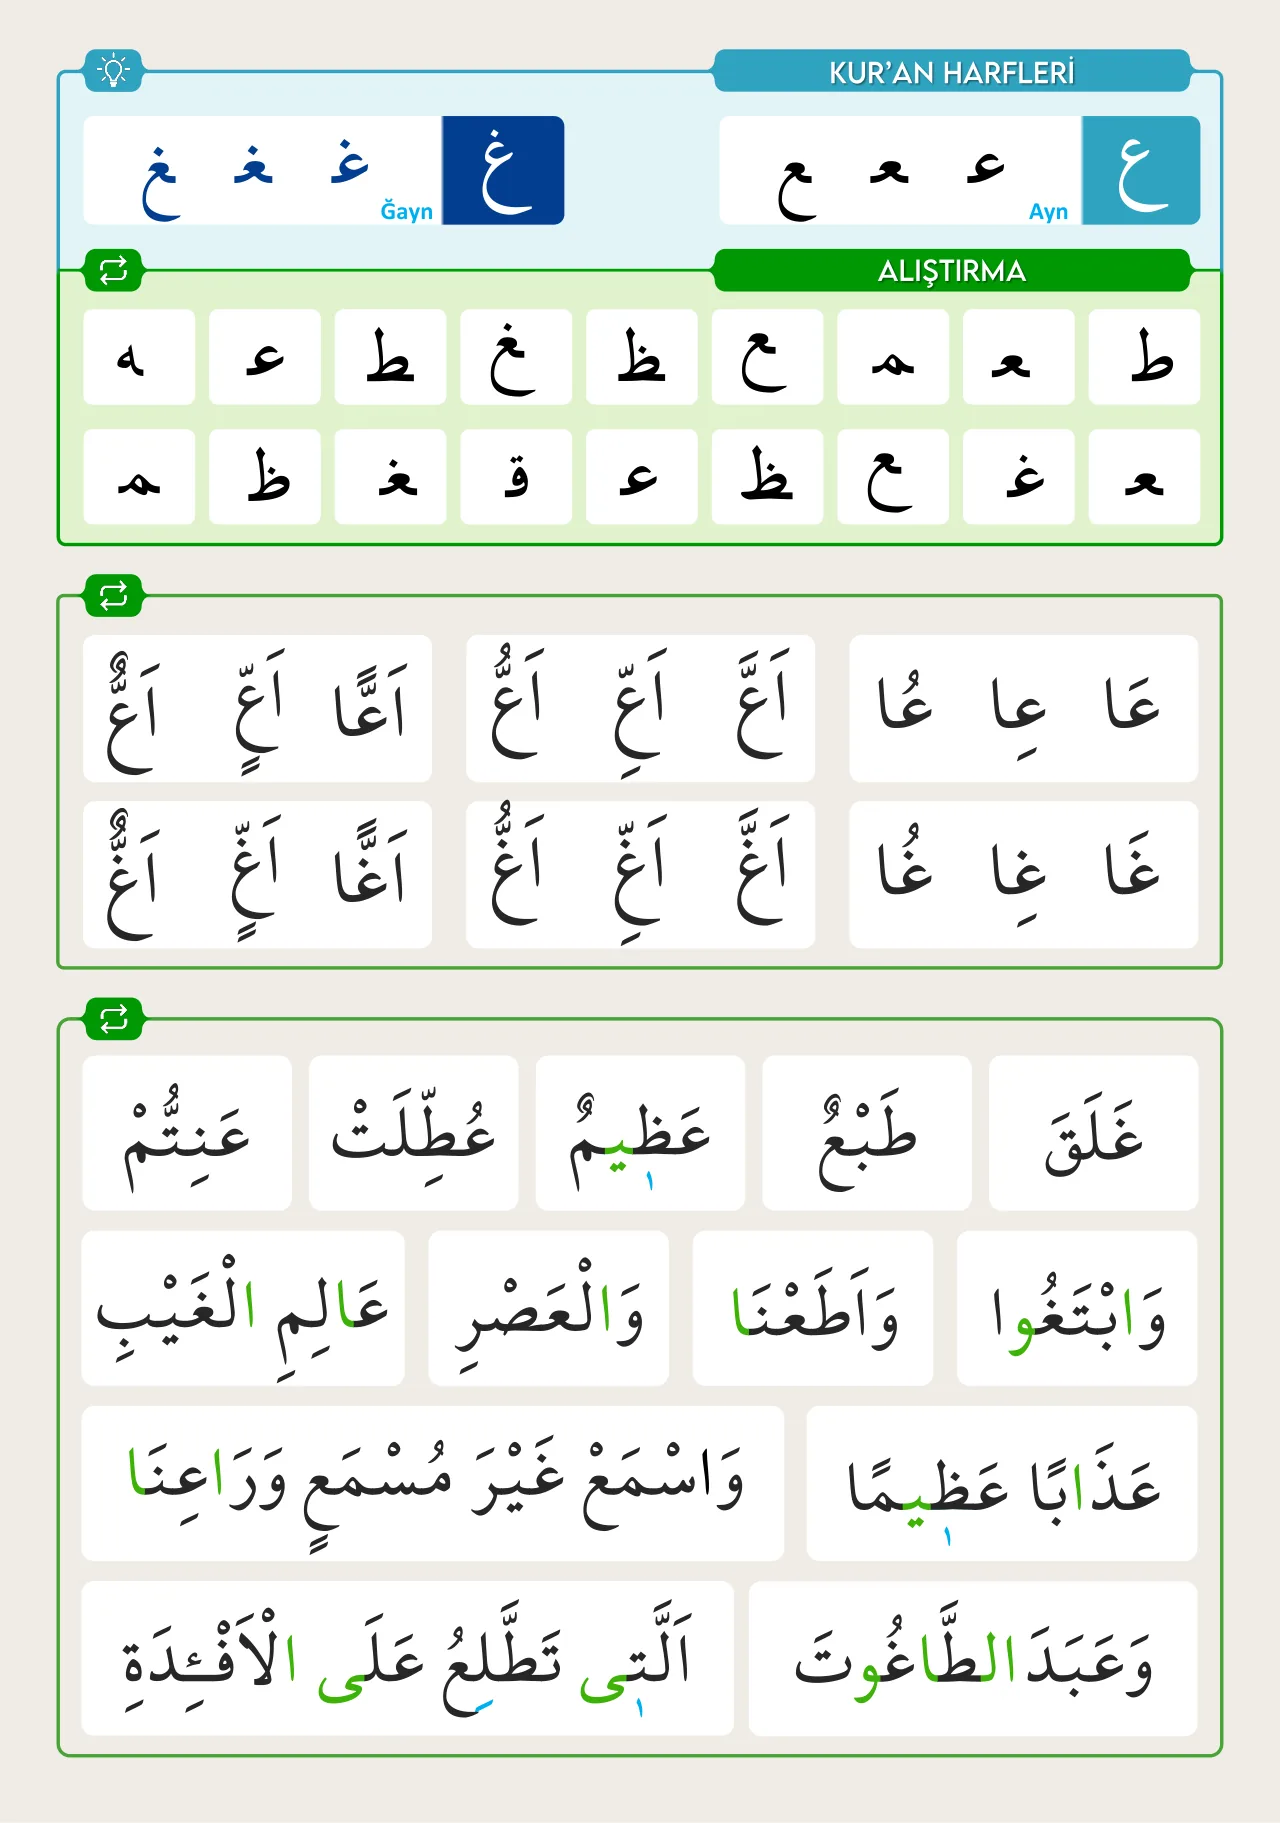 KUR'AN HARFLERİ
ع عـ ـعـ ـع Ayn
غ غـ ـغـ ـغ Ğayn
ALIŞTIRMA
ط ـعـ ـمـ ـع ـظ ـغ ـط عـ ه
ـعـ غـ ـع ـظ عـ قـ ـغـ ظ ـمـ
عَا عِا عُا اَعَّ اَعِّ اَعُّ اَعًّا اَعٍّ اَعٌّ
غَا غِا غُا اَغَّ اَغِّ اَغُّ اَغًّا اَغٍّ اَغٌّ
غَلَقَ طَبْعٌ عَظٖيمٌ عُطِّلَتْ عَنِتُّمْ
وَابْتَغُوا وَاَطَعْنَا وَالْعَصْرِ عَالِمِ الْغَيْبِ
عَذَابًا عَظٖيمًا وَاسْمَعْ غَيْرَ مُسْمَعٍ وَرَاعِنَا
وَعَبَدَ الطَّاغُوتَ اَلَّتٖى تَطَّلِعُ عَلَى الْاَفْـِٔدَةِ